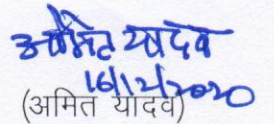 अमित यादव
16/12/2020
(अमित यादव)